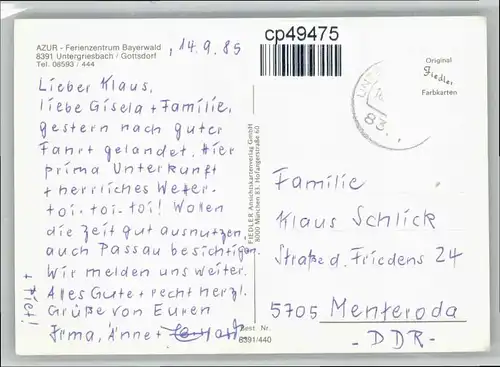 AZUR - Ferienzentrum Bayerwald
8391 Untergriesbach / Gottsdorf
Tel. 08593 / 444
, 14.9.85
cp49475
Original
Fiedler
Farbkarten
83
Lieber Klaus,
liebe Gisela + Familie,
gestern nach guter
Fahrt gelandet. Hier
prima Unterkunft
+ herrliches Wetter-
toi-toi-toi! Wollen
die Zeit gut ausnutzen
auch Passau besichtigen.
Wir melden uns weiter.
Alles Gute + recht herzl.
Grüße von Euren
Irma, Änne +
+ Piet!
FIEDLER, Ansichtskartenverlag GmbH
8000 München 83, Hofangerstraße 60
Best Nr.
8391/440
Familie
Klaus Schlick
Straße d. Friedens 24
5705 Menteroda
- DDR -